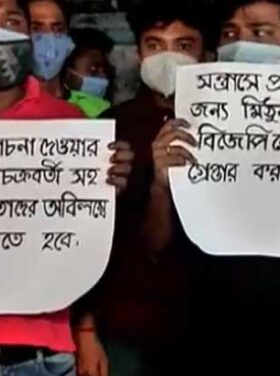 চনা দেওয়ার
চক্রবর্তী সহ
অবিলম্বে
তে হবে.
সন্ত্রাসে
জন্য মিঠু
বিজেপি
গ্রেপ্তার কর